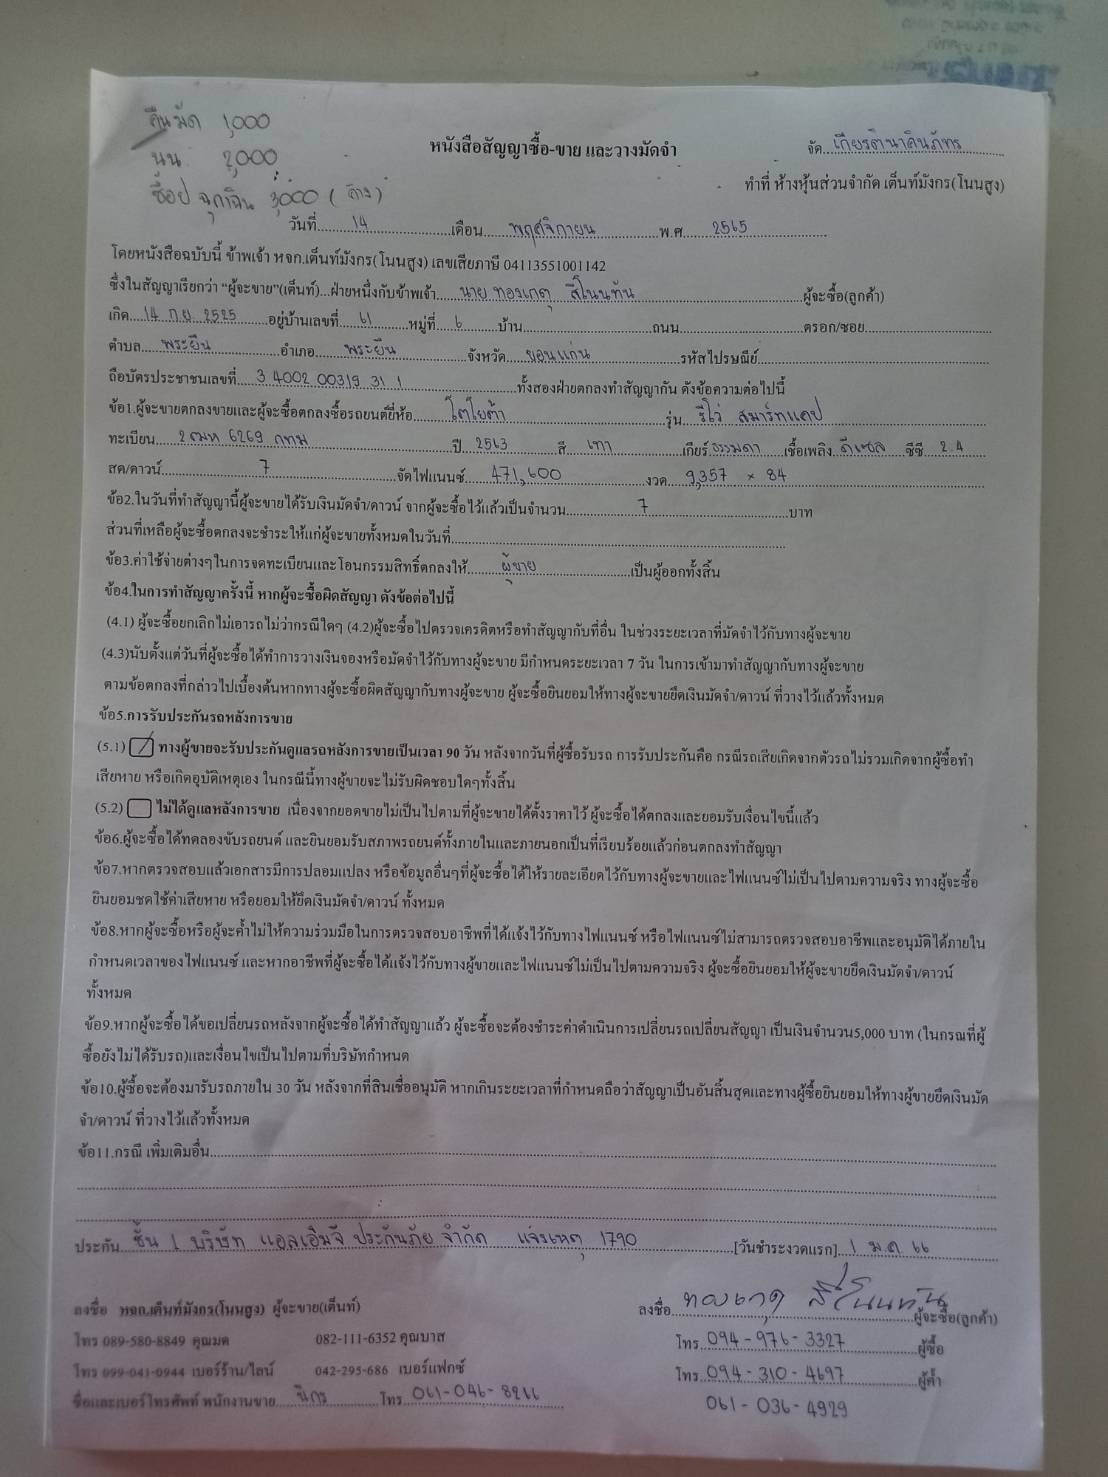 คืนมัด 1,000
นน. 2,000
ช็อป ฉุกเฉิน 3,000 (ค้าง)
หนังสือสัญญาซื้อ-ขาย และวางมัดจำ
จัด. เกียรตินาคินภัทร
ทำที่ ห้างหุ้นส่วนจำกัด เต็นท์มังกร(โนนสูง)
วันที่ 14 เดือน พฤศจิกายน พ.ศ. 2565
โดยหนังสือฉบับนี้ ข้าพเจ้า หจก.เต็นท์มังกร(โนนสูง) เลขเสียภาษี 04113551001142
ซึ่งในสัญญาเรียกว่า "ผู้จะขาย"(เต็นท์)...ฝ่ายหนึ่งกับข้าพเจ้า นาย ทองเกตุ สีโนนทัน ผู้จะซื้อ(ลูกค้า)
เกิด 14 ก.ย. 2525 อยู่บ้านเลขที่ 61 หมู่ที่ 6 บ้าน ถนน ตรอก/ซอย
ตำบล พระยืน อำเภอ พระยืน จังหวัด ขอนแก่น รหัสไปรษณีย์
ถือบัตรประชาชนเลขที่ 3 4002 00319 31 1 ทั้งสองฝ่ายตกลงทำสัญญากัน ดังข้อความต่อไปนี้
ข้อ1.ผู้จะขายตกลงขายและผู้จะซื้อตกลงซื้อรถยนต์ยี่ห้อ โตโยต้า รุ่น รีโว่ สมาร์ทแคป
ทะเบียน 2ฒห 6269 กทม ปี 2563 สี เทา เกียร์ ธรรมดา เชื้อเพลิง ดีเซล ซีซี 2.4
สด/ดาวน์ 7 จัดไฟแนนซ์ 471,600 งวด 9,357 × 84
ข้อ2.ในวันที่ทำสัญญานี้ผู้จะขายได้รับเงินมัดจำ/ดาวน์ จากผู้จะซื้อไว้แล้วเป็นจำนวน 7 บาท
ส่วนที่เหลือผู้จะซื้อตกลงจะชำระให้แก่ผู้จะขายทั้งหมดในวันที่
ข้อ3.ค่าใช้จ่ายต่างๆในการจดทะเบียนและโอนกรรมสิทธิ์ตกลงให้ ผู้ขาย เป็นผู้ออกทั้งสิ้น
ข้อ4.ในการทำสัญญาครั้งนี้ หากผู้จะซื้อผิดสัญญา ดังข้อต่อไปนี้
(4.1) ผู้จะซื้อยกเลิกไม่เอารถไม่ว่ากรณีใดๆ (4.2)ผู้จะซื้อไปตรวจเครดิตหรือทำสัญญากับที่อื่น ในช่วงระยะเวลาที่มัดจำไว้กับทางผู้จะขาย
(4.3)นับตั้งแต่วันที่ผู้จะซื้อได้ทำการวางเงินจองหรือมัดจำไว้กับทางผู้จะขาย มีกำหนดระยะเวลา 7 วัน ในการเข้ามาทำสัญญากับทางผู้จะขาย
ตามข้อตกลงที่กล่าวไปเบื้องต้นหากทางผู้จะซื้อผิดสัญญากับทางผู้จะขาย ผู้จะซื้อยินยอมให้ทางผู้จะขายยึดเงินมัดจำ/ดาวน์ ที่วางไว้แล้วทั้งหมด
ข้อ5.การรับประกันรถหลังการขาย
(5.1) ทางผู้ขายจะรับประกันดูแลรถหลังการขายเป็นเวลา 90 วัน หลังจากวันที่ผู้ซื้อรับรถ การรับประกันคือ กรณีรถเสียเกิดจากตัวรถไม่รวมเกิดจากผู้ซื้อทำ
เสียหาย หรือเกิดอุบัติเหตุเอง ในกรณีนี้ทางผู้ขายจะไม่รับผิดชอบใดๆทั้งสิ้น
(5.2) ไม่ได้ดูแลหลังการขาย เนื่องจากยอดขายไม่เป็นไปตามที่ผู้จะขายได้ตั้งราคาไว้ ผู้จะซื้อได้ตกลงและยอมรับเงื่อนไขนี้แล้ว
ข้อ6.ผู้จะซื้อได้ทดลองขับรถยนต์ และยินยอมรับสภาพรถยนต์ทั้งภายในและภายนอกเป็นที่เรียบร้อยแล้วก่อนตกลงทำสัญญา
ข้อ7.หากตรวจสอบแล้วเอกสารมีการปลอมแปลง หรือข้อมูลอื่นๆที่ผู้จะซื้อได้ให้รายละเอียดไว้กับทางผู้จะขายและไฟแนนซ์ไม่เป็นไปตามความจริง ทางผู้จะซื้อ
ยินยอมชดใช้ค่าเสียหาย หรือยอมให้ยึดเงินมัดจำ/ดาวน์ ทั้งหมด
ข้อ8.หากผู้จะซื้อหรือผู้จะค้ำไม่ให้ความร่วมมือในการตรวจสอบอาชีพที่ได้แจ้งไว้กับทางไฟแนนซ์ หรือไฟแนนซ์ไม่สามารถตรวจสอบอาชีพและอนุมัติได้ภายใน
กำหนดเวลาของไฟแนนซ์ และหากอาชีพที่ผู้จะซื้อได้แจ้งไว้กับทางผู้ขายและไฟแนนซ์ไม่เป็นไปตามความจริง ผู้จะซื้อยินยอมให้ผู้จะขายยึดเงินมัดจำ/ดาวน์
ทั้งหมด
ข้อ9.หากผู้จะซื้อได้ขอเปลี่ยนรถหลังจากผู้จะซื้อได้ทำสัญญาแล้ว ผู้จะซื้อจะต้องชำระค่าดำเนินการเปลี่ยนรถเปลี่ยนสัญญา เป็นเงินจำนวน5,000 บาท (ในกรณที่ผู้
ซื้อยังไม่ได้รับรถ)และเงื่อนไขเป็นไปตามที่บริษัทกำหนด
ข้อ10.ผู้ซื้อจะต้องมารับรถภายใน 30 วัน หลังจากที่สินเชื่ออนุมัติ หากเกินระยะเวลาที่กำหนดถือว่าสัญญาเป็นอันสิ้นสุดและทางผู้ซื้อยินยอมให้ทางผู้ขายยึดเงินมัด
จำ/ดาวน์ ที่วางไว้แล้วทั้งหมด
ข้อ11.กรณี เพิ่มเติมอื่น
ประกัน ชั้น 1 บริษัท แอลเอ็มจี ประกันภัย จำกัด แจ้งเหตุ 1790 [วันชำระงวดแรก] 1 ม.ค 66
ลงชื่อ หจก.เต็นท์มังกร(โนนสูง) ผู้จะขาย(เต็นท์)
ลงชื่อ ทองเกตุ สีโนนทัน ผู้จะซื้อ(ลูกค้า)
โทร 089-580-8849 คุณมด 082-111-6352 คุณบาส
โทร 094-976-3327 ผู้ซื้อ
โทร 099-041-0944 เบอร์ร้าน/ไลน์ 042-295-686 เบอร์แฟกซ์
โทร 094-310-4697 ผู้ค้ำ
ชื่อและเบอร์โทรศัพท์ พนักงานขาย นิกร โทร 061-046-8266
061-036-4929